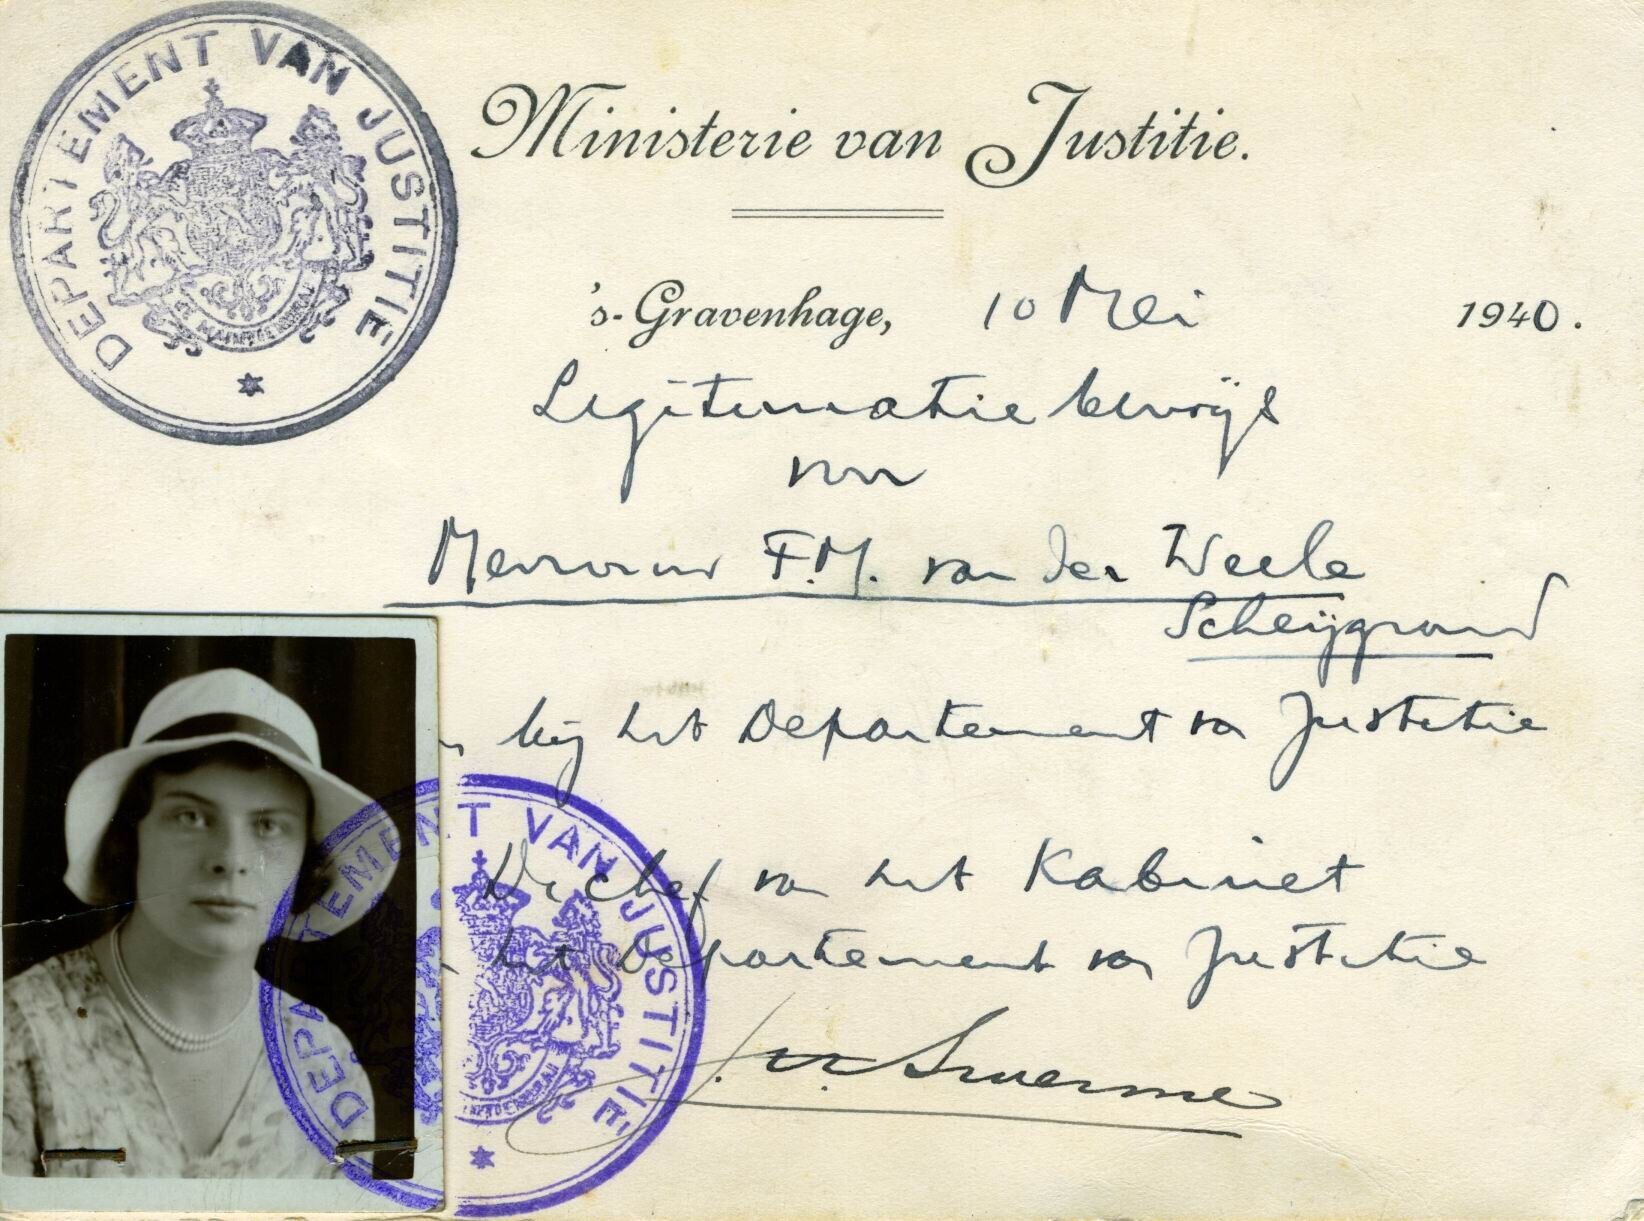 DEPARTEMENT VAN JUSTITIE
Ministerie van Justitie.
's-Gravenhage, 10 Mei 1940.
Legitimatie bewijs
voor
Mevrouw F.M. van der Weele
Scheijgrond
bij het Departement van Justitie
DEPARTEMENT VAN JUSTITIE
De Chef van het Kabinet
het Departement van Justitie